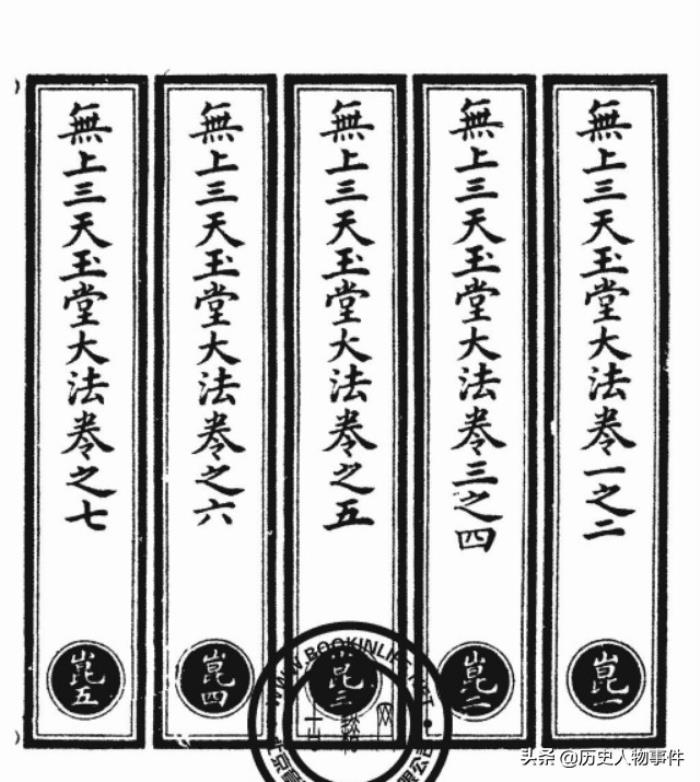 無上三天玉堂大法卷一之二
崑一
無上三天玉堂大法卷三之四
崑二
無上三天玉堂大法卷之五
崑三
無上三天玉堂大法卷之六
崑四
無上三天玉堂大法卷之七
崑五
WWW.BOOKINLIFE.NET
头条 @历史人物事件